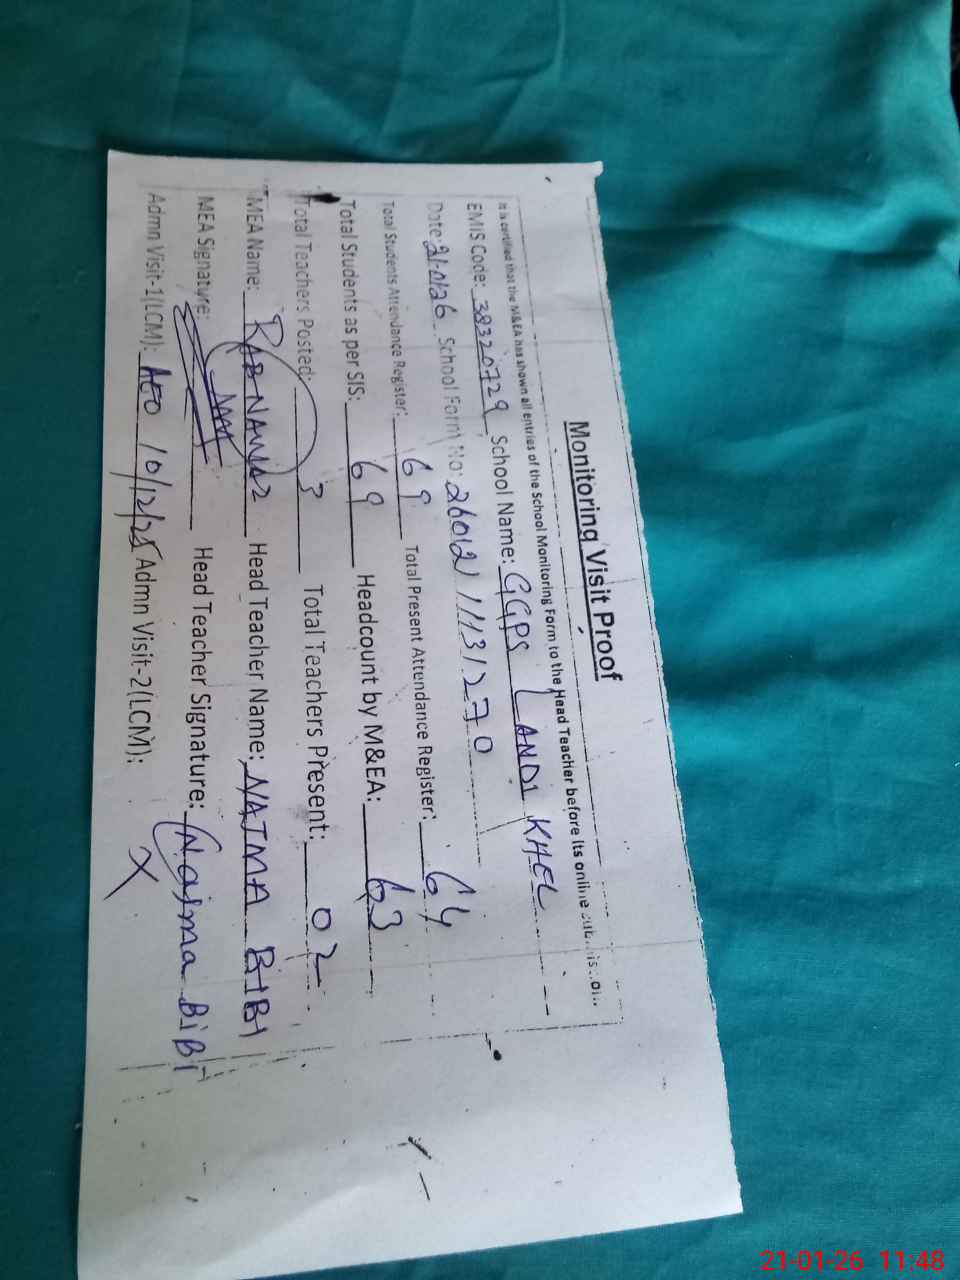 Monitoring Visit Proof
It is certified that the M&EA has shown all entries of the School Monitoring Form to the Head Teacher before its online submission.
EMIS Code: 38320729 School Name: GGPS LANDI KHEL
Date: 21-01-26 School Form No: 26012111131270
Total Students Attendance Register: 69 Total Present Attendance Register: 64
Total Students as per SIS: 69 Headcount by M&EA: 63
Total Teachers Posted: 3 Total Teachers Present: 02
MEA Name: RAB NAWAZ Head Teacher Name: NAJMA BIBI
MEA Signature: Head Teacher Signature: Najma BiBi
Admn Visit-1(LCM): AEO 10/12/25 Admn Visit-2(LCM): X
21-01-26 11:48